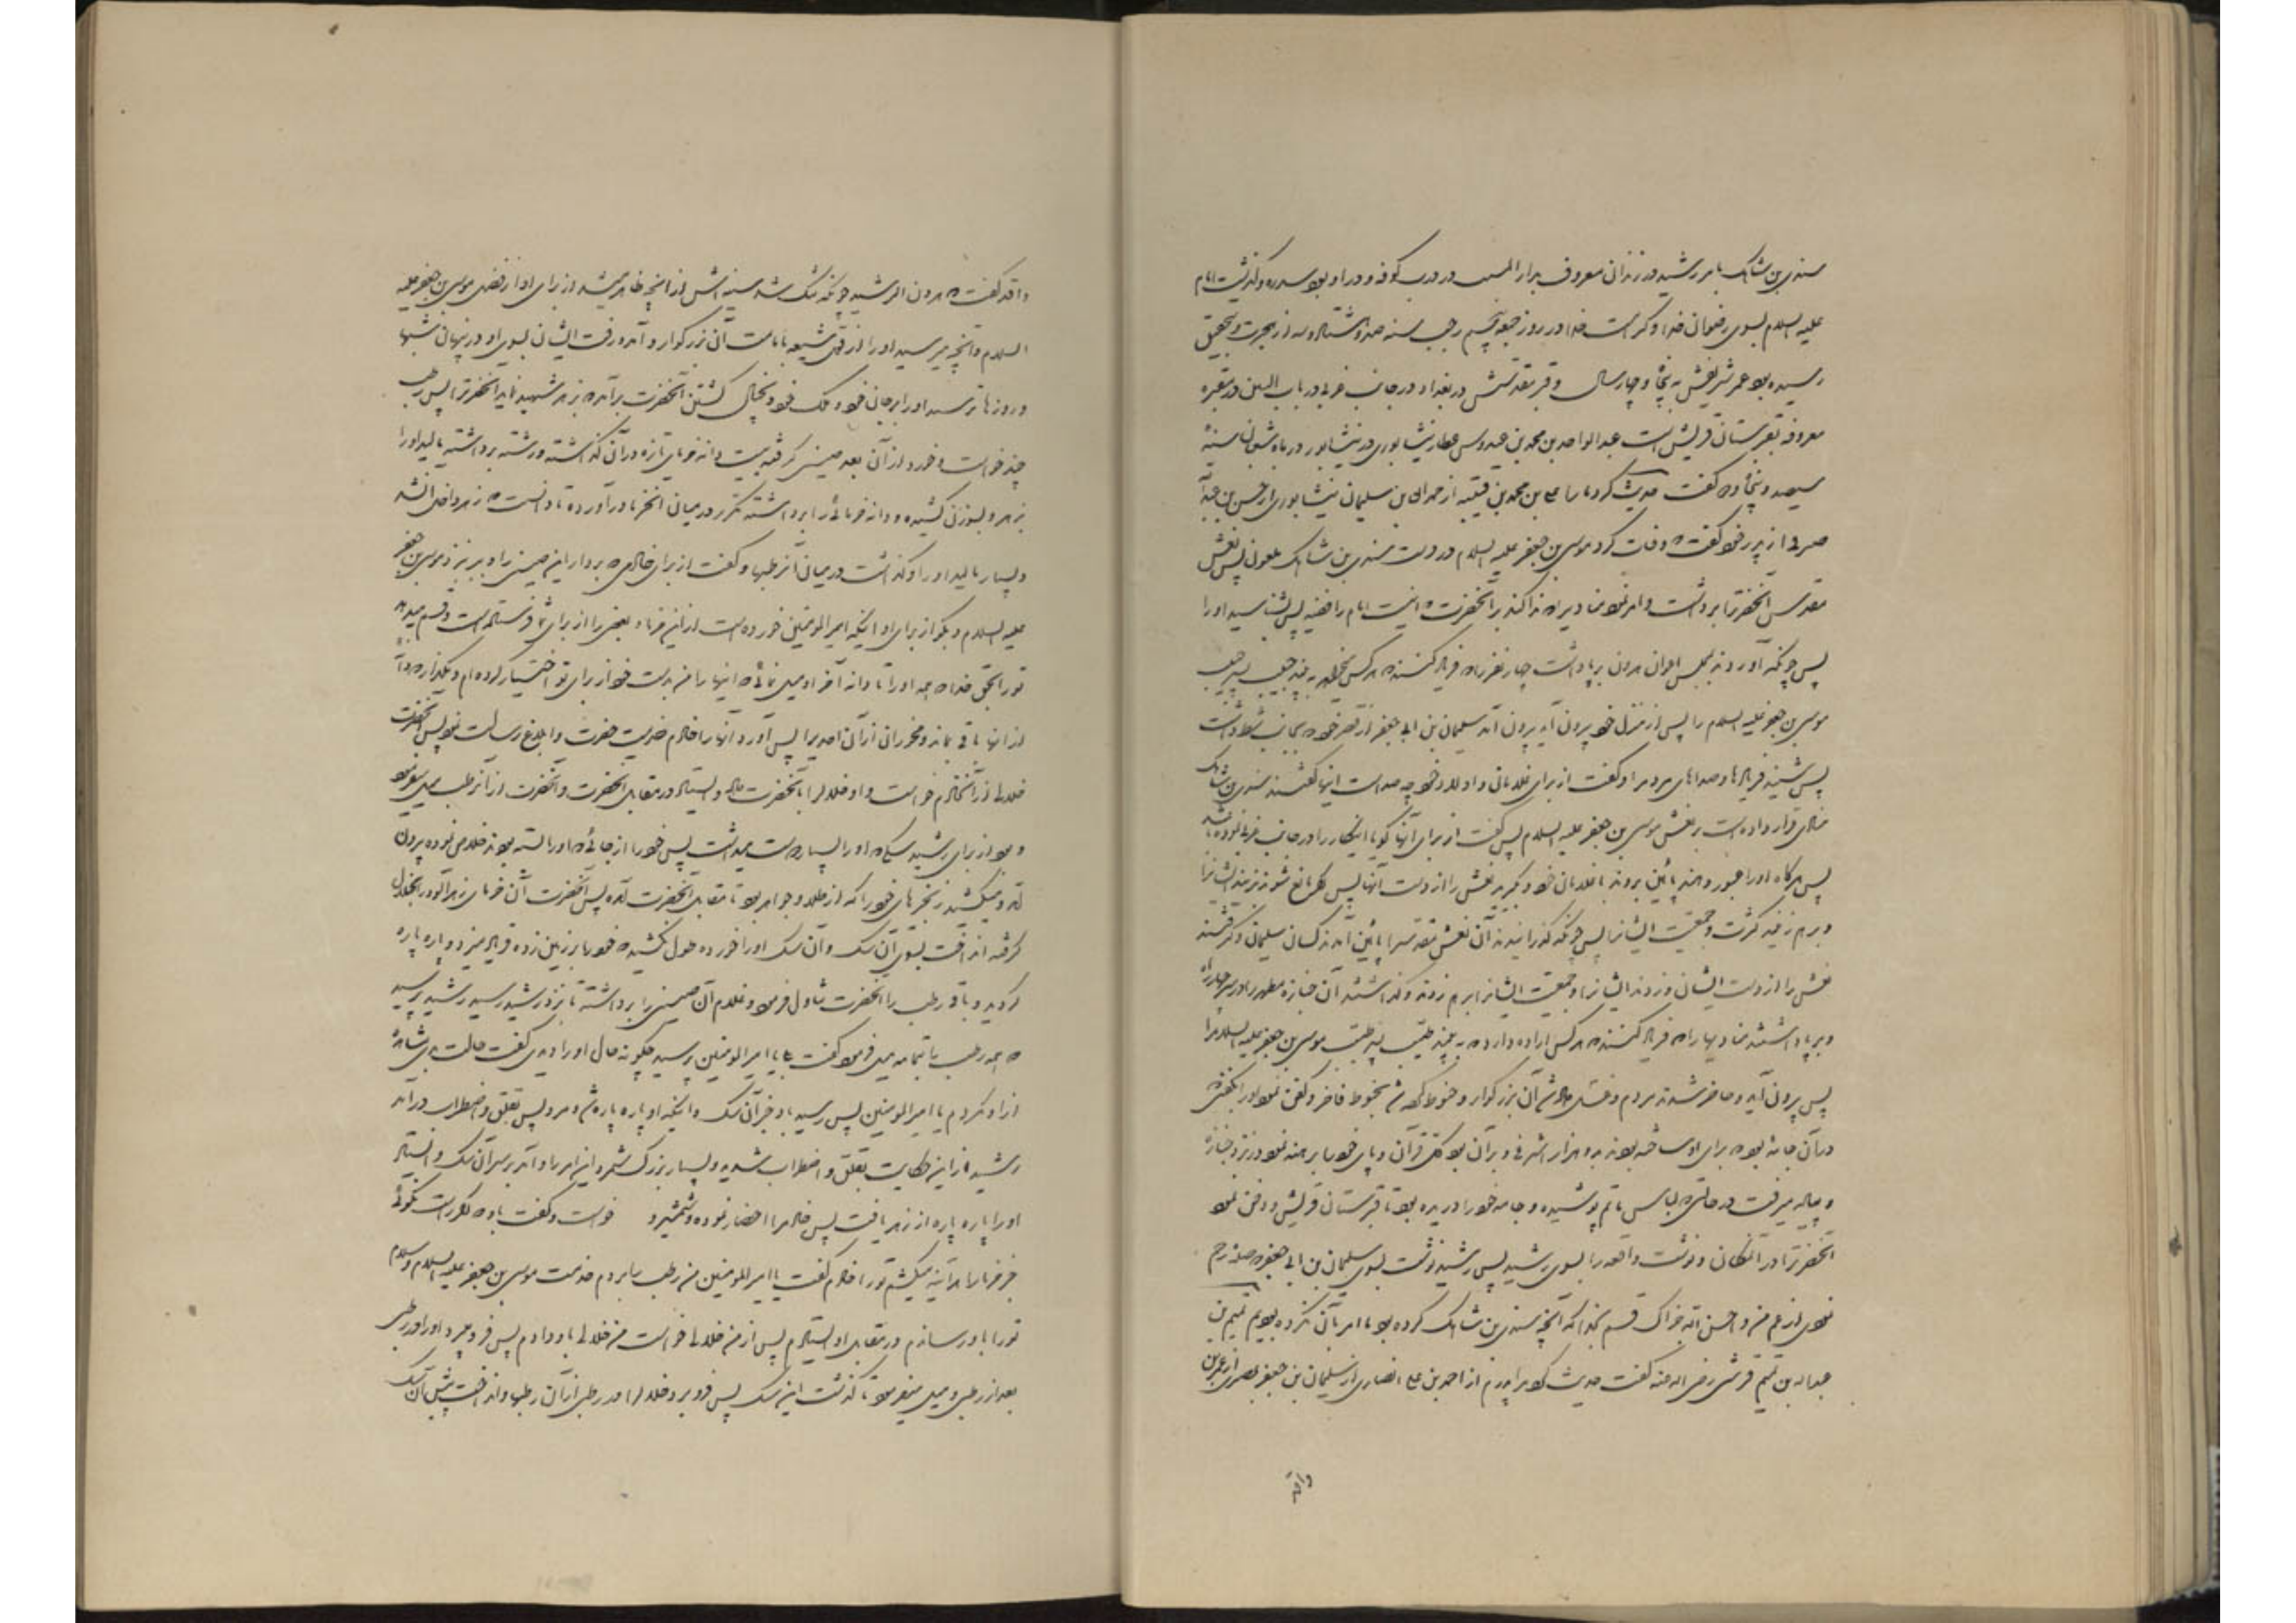 سندی بن شاهک بامر رشید در زندان معروف بدار المسیب در درب کوفه و در او بود سدره و گذشت امام
علیه السلام بسوی رضوان خدا و کرامت خدا در روز جمعه پنجم رجب سنه صد و هشتاد و سه از هجرت و بتحقیق
رسیده بود عمر شریفش به پنجاه و چهار سال و قبر مقدسش در بغداد در جانب غربی در باب التین در مقبره
معروفه بقبرستان قریش است عبد الواحد بن محمد بن عبدوس عطار نیشابوری در نیشابور در ماه شعبان سنهٔ
سیصد و پنجاه و دو گفت حدیث کرد ما را علی بن محمد بن قتیبه از حمدان بن سلیمان نیشابوری از حسن بن عبدالله
صرفی از پدر خود گفت که وفات کرد موسی بن جعفر علیه السلام در دست سندی بن شاهک ملعون پس نعش
مقدس آنحضرترا برداشت و امر نمود منادیرا که ندا کند بر آنحضرت که اینست امام رافضه پس بشناسید او را
پس چونکه آوردند بمجلس اعوان هرون برپا داشت چهار نفر را که فریاد کنند که هرکس میخواهد به بیند خبیث پسر خبیث
موسی بن جعفر علیه السلام را پس از منزل خود بیرون آید بیرون آمد سلیمان بن ابی جعفر از قصر خود که بجانب شط داشت
پس شنید فریادها و صداهای مردم را و گفت از برای غلامان و اولاد خود چه صداست اینها گفتند سندی بن شاهک
منادی قرار داده است بر نعش موسی بن جعفر علیه السلام پس گفت از برای آنها گویا اینکار را در جانب غربی نموده باشد
پس هرگاه او را عبور دهند پائین بروند با غلامان خود و بگیرید نعش را از دست آنها پس اگر مانع شوند بزنید ایشانرا
و برهم زنید کثرت و جمعیت ایشانرا پس چونکه گذرانیدند آن نعش مقدسرا پائین آمدند کسان سلیمان و گرفتند
نعش را از دست ایشان و زدند ایشانرا و جمعیت ایشانرا برهم زدند و گذاشتند آن جنازه مطهر را در سر چهار راه
و برپا داشتند منادیها را که فریاد کنند که هرکس اراده دارد که به بیند طیب پسر طیب موسی بن جعفر علیه السلام را
پس بیرون آید و حاضر شدند مردم و غسل داده شد آن بزرگوار و حنوط کرده شد بحنوط فاخر و کفن نمود او را بکفنی که
در آن جامهٔ بود که برای او ساخته بودند بدو هزار اشرفی و بر آن بود کل قرآن و پای خود را برهنه نمود در نزد جنازه
و پیاده میرفت در حالتی که لباس ماتم پوشیده و جامه خود را دریده بود تا قبرستان قریش و دفن نمود
آنحضرترا در آنمکان و نوشت واقعه را بسوی رشید پس رشید نوشت بسوی سلیمان بن ابی جعفر که صله رحم
نمودی از عم من و احسن الله جزاک قسم بخدا که آنچه سندی بن شاهک کرده بود ما امر بآن نکرده بودیم تمیم بن
عبدالله بن تمیم قرشی رضی الله عنه گفت حدیث کرد مرا پدرم از احمد بن علی انصاری از سلیمان بن جعفر بصری از عمر بن
واقد
واقد گفت که هرون الرشید چونکه تنگ شد سینه اش از آنچه ظاهر میشد از برای او از فضل موسی بن جعفر علیه
السلام و آنچه میرسید او را از قول شیعه بامامت آن بزرگوار و آمد و رفت ایشان بسوی او در پنهان شبها
و روزها ترسید او را بر جان خود و ملک خود و بخیال کشتن آنحضرت برآمد که بزهر شهید نماید آنحضرترا پس رطب
چند خواست و خورد از آن بعد صینی گرفته بیست دانه خرمای تازه در آن گذاشته و رشته برداشته مالید او را
بزهر و بسوزن کشیده و دانه خرمائی را برداشته مکرر در میان آنخرما در آورده تا دانست که زهر داخل آنشد
و بسیار مالید او را و گذاشت در میان آنرطبها و گفت از برای خادمی که بردار این صینی را و ببر نزد موسی بن جعفر
علیه السلام و بگو از برای او اینکه امیر المومنین خورده است از این خرما و بعضی را از برای شما فرستاده است و قسم میدهد
تو را بحق خدا که همه او را تا دانه آخر او میل نمائی که اینها را من بدست خود از برای تو اختیار کرده ام و نگذار که
از آنها باقی بماند و نخوران از آن احدیرا پس آورد آنها را خادم خدمت حضرت و ابلاغ رسالت نمود پس آنحضرت
خلالی از آنخادم خواست و او خلال را بآنحضرت داد و ایستاد در مقابل آنحضرت و آنحضرت از آنرطب میل میفرمود
و بود از برای رشید سگی که او را بسیار دوست میداشت پس خود را از جائی که او را بسته بودند خلاص نموده بیرون
آمد و میکشید زنجیرهای خود را که از طلا و جواهر بود تا مقابل آنحضرت آمد پس آنحضرت آن خرمای زهرآلود را بخلال
گرفته انداخت بسوی آن سگ و آن سگ او را خورده طول نکشید که خود را بر زمین زده فریاد میزد و پاره پاره
گردید و باقی رطب را آنحضرت تناول فرمود و غلام آن صینی را برداشته تا بنزد رشید رسید رشید پرسید
که همه رطب را بتمامه میل فرمود گفت بلی یا امیر المومنین پرسید چگونه حال او را دیدی گفت حالت بدی مشاهده
از او نکردم یا امیر المومنین پس رسید باو خبر آن سگ و اینکه او پاره پاره شد و مرد پس بقلق و اضطراب درآمد
رشید از این حکایت بقلق و اضطراب شدید و بسیار بزرگ شمرد این امر را و آمد بر سر آن سگ و ایستاد
او را پاره پاره از زهر یافت پس خادم را احضار نموده و شمشیر و خواست و گفت باو که اگر راست نگوئی
خبر خرما را هرآینه میکشم تو را خادم گفت یا امیر المومنین من رطب را بردم خدمت موسی بن جعفر علیه السلام و سلام
تو را باو رسانیدم و در مقابل او ایستادم پس از من خلالی خواست من خلالی باو دادم پس فرو میبرد او را در رطبی
بعد از رطبی و میل میفرمود تا گذشت این سگ پس فرو برد خلال را در رطبی از آن رطبها و انداخت پیش آن سگ